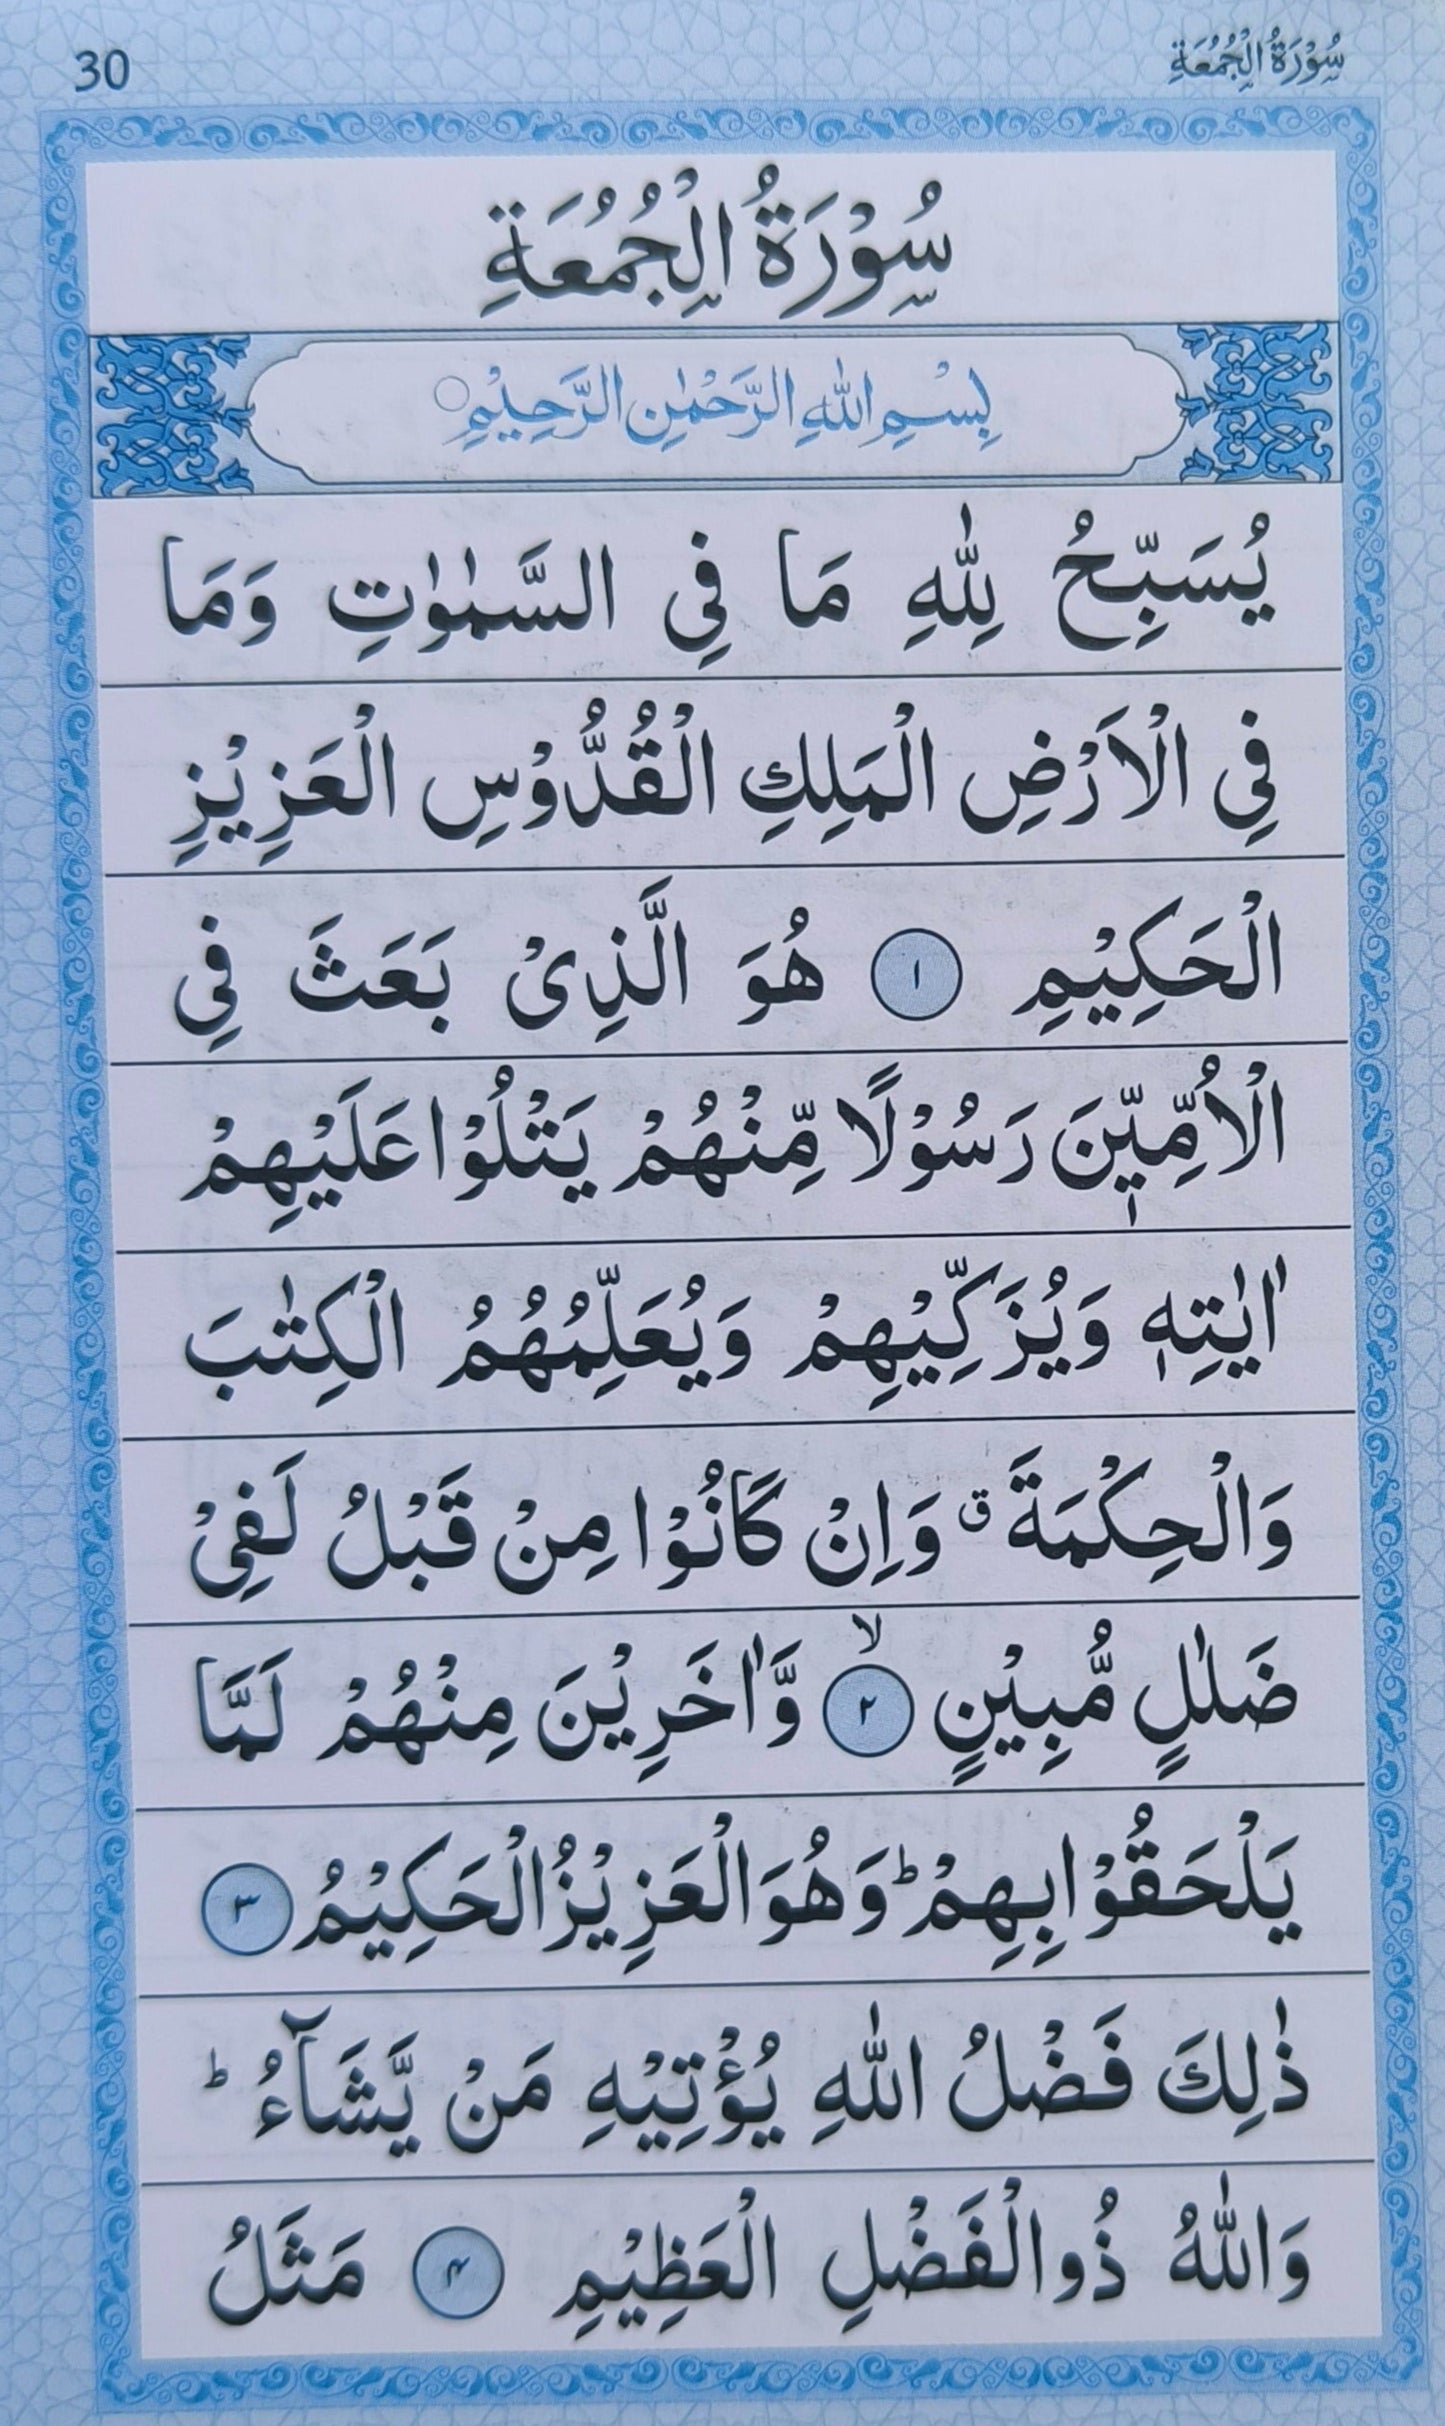 سُوْرَةُ الْجُمُعَةِ
30
سُوْرَةُ الْجُمُعَةِ
بِسْمِ اللّٰهِ الرَّحْمٰنِ الرَّحِيْمِ
يُسَبِّحُ لِلّٰهِ مَا فِى السَّمٰوٰتِ وَمَا
فِى الْاَرْضِ الْمَلِكِ الْقُدُّوْسِ الْعَزِيْزِ
الْحَكِيْمِ ۱ هُوَ الَّذِىْ بَعَثَ فِى
الْاُمِّيّٖنَ رَسُوْلًا مِّنْهُمْ يَتْلُوْا عَلَيْهِمْ
اٰيٰتِهٖ وَيُزَكِّيْهِمْ وَيُعَلِّمُهُمُ الْكِتٰبَ
وَالْحِكْمَةَ ق وَاِنْ كَانُوْا مِنْ قَبْلُ لَفِىْ
ضَلٰلٍ مُّبِيْنٍ ۲ ۙ وَّاٰخَرِيْنَ مِنْهُمْ لَمَّا
يَلْحَقُوْا بِهِمْ ؕ وَهُوَ الْعَزِيْزُ الْحَكِيْمُ ۳
ذٰلِكَ فَضْلُ اللّٰهِ يُؤْتِيْهِ مَنْ يَّشَآءُ ؕ
وَاللّٰهُ ذُو الْفَضْلِ الْعَظِيْمِ ۴ مَثَلُ